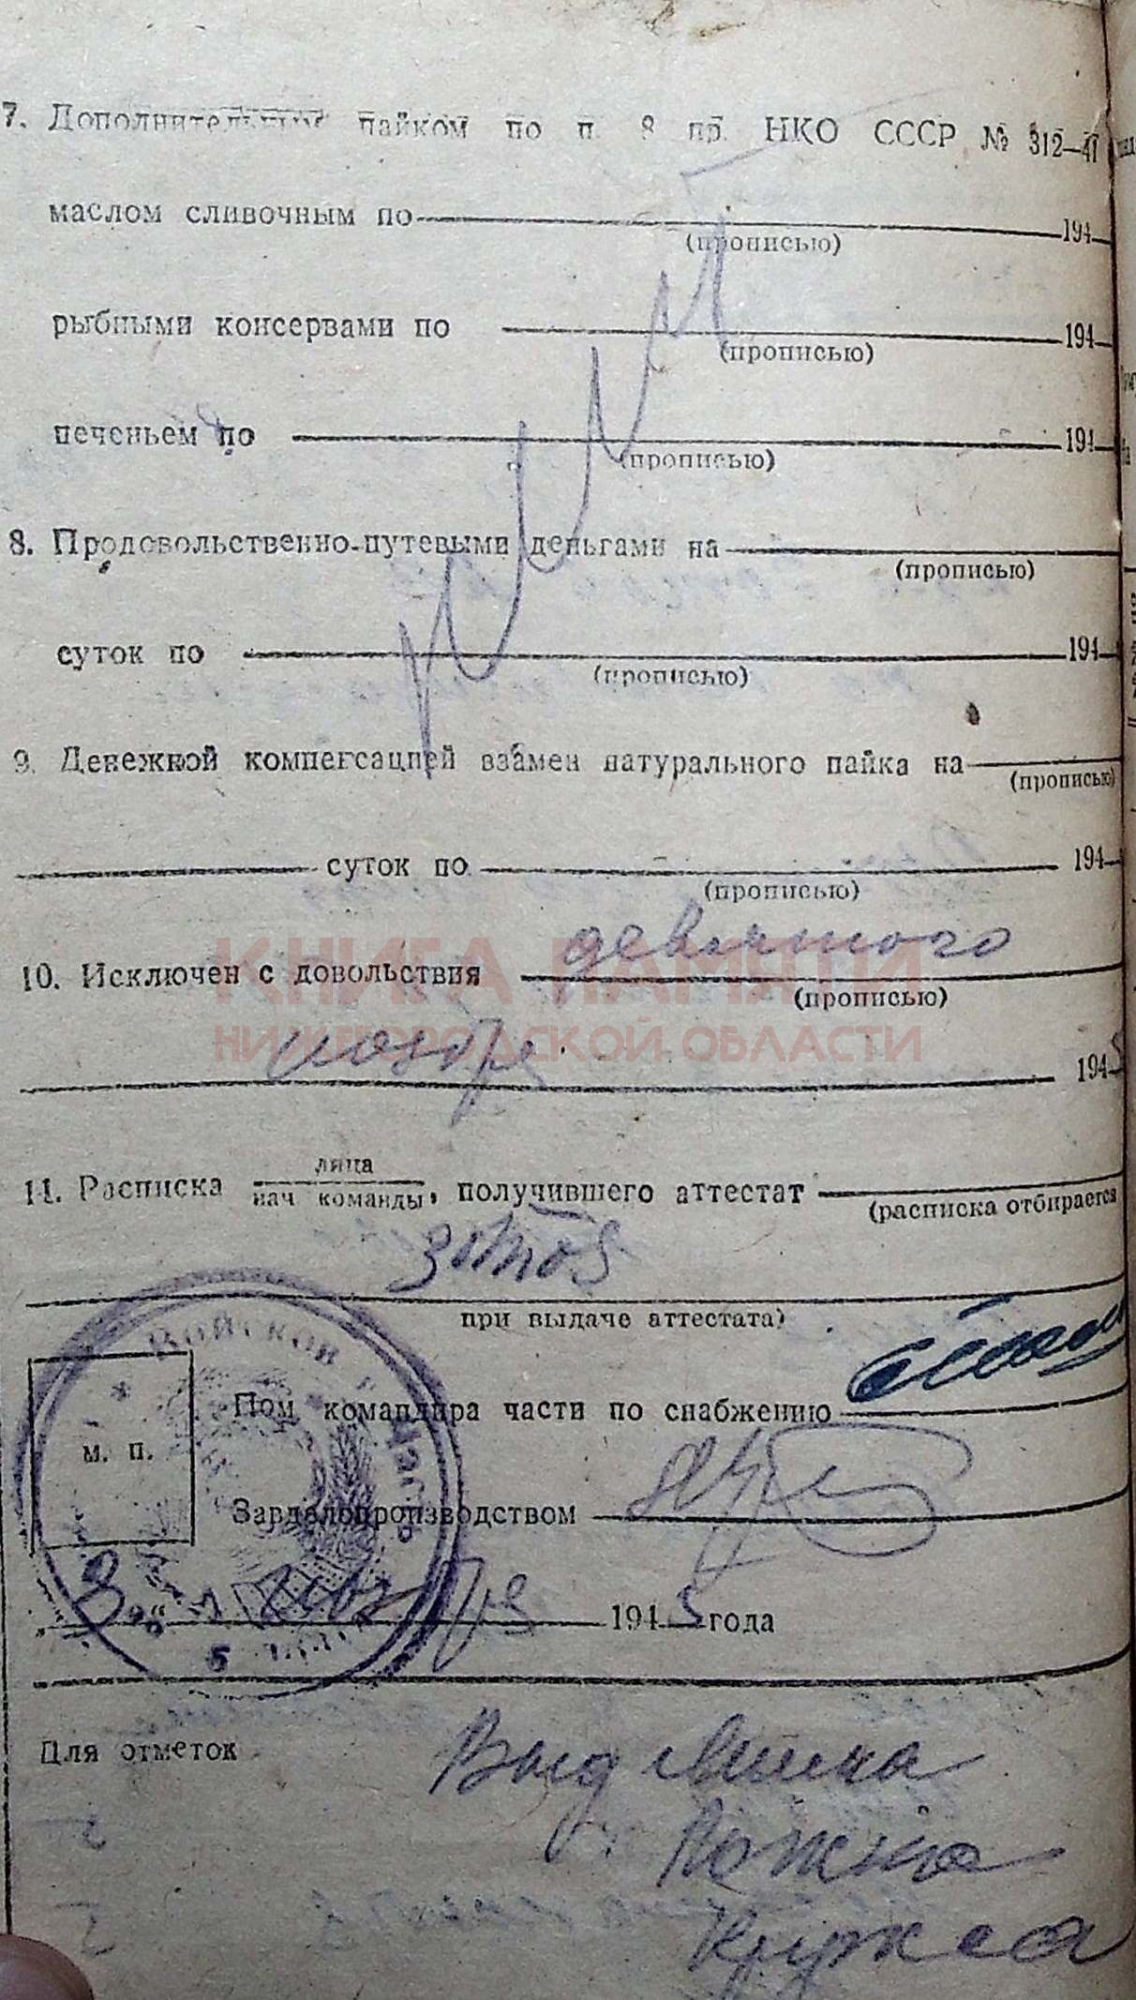 7. Дополнительным пайком по п. 8 пр. НКО СССР № 312—41
маслом сливочным по 194
(прописью)
рыбными консервами по 194
(прописью)
печеньем по 194
(прописью)
8. Продовольственно-путевыми деньгами на
(прописью)
суток по 194
(прописью)
9. Денежной компенсацией взамен натурального пайка на
(прописью)
суток по 194
(прописью)
10. Исключен с довольствия девятого
(прописью)
ноября 1945
КНИГА ПАМЯТИ
НИЖЕГОРОДСКОЙ ОБЛАСТИ
11. Расписка лица
нач команды, получившего аттестат
(расписка отбирается
Зотов
при выдаче аттестата)
Войсков
часть
Пом командира части по снабжению
м. п.
Завделопроизводством
"9" ноября 1945 года
Для отметок
Выд
Ложка
Кружка